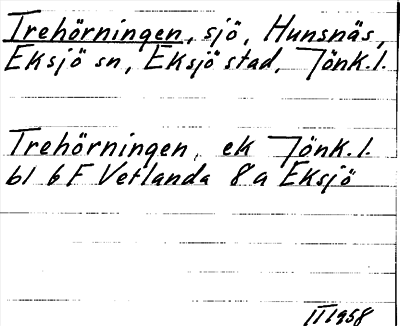 Trehörningen, sjö, Hunsnäs,
Eksjö sn, Eksjö stad, Jönk.l.
Trehörningen, ek Jönk.l.
bl 6 F Vetlanda 8 a Eksjö
II 1958